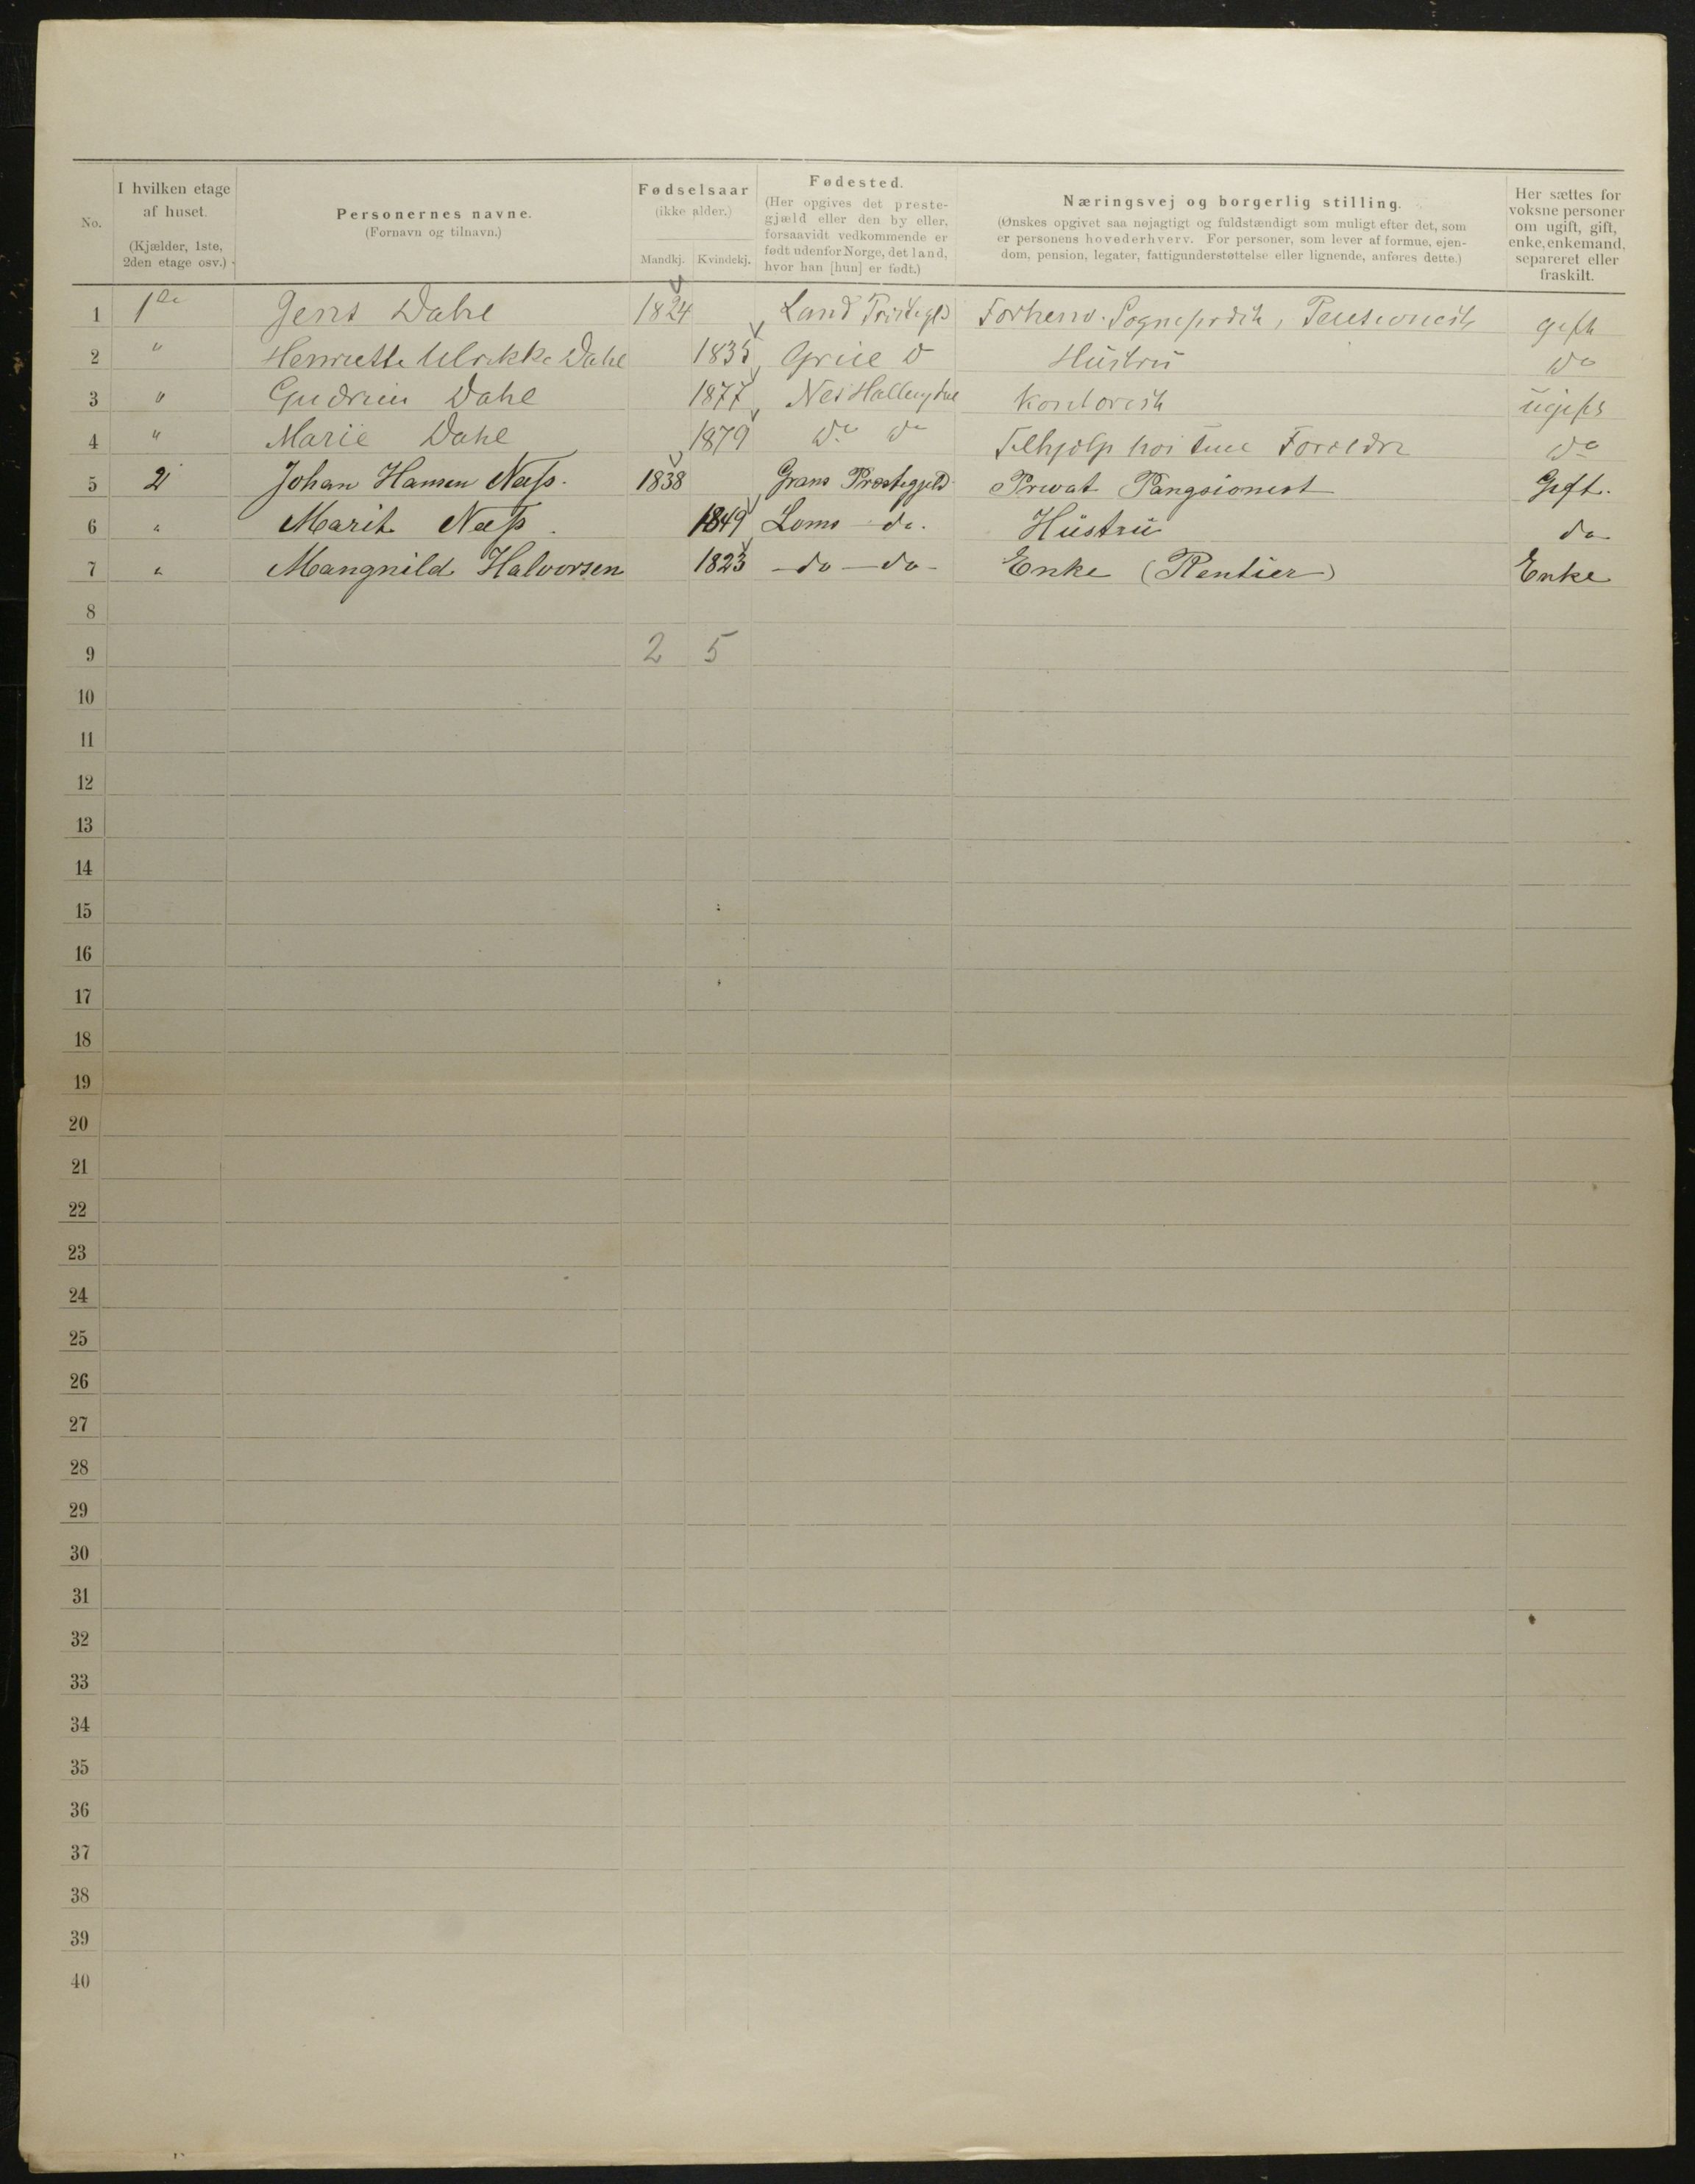 No. | I hvilken etage af huset. (Kjælder, 1ste, 2den etage osv.) | Personernes navne. (Fornavn og tilnavn.) | Fødselsaar (ikke alder.) Mandkj. Kvindekj. | Fødested. (Her opgives det prestegjæld eller den by eller, forsaavidt vedkommende er født udenfor Norge, det land, hvor han [hun] er født.) | Næringsvej og borgerlig stilling. (Ønskes opgivet saa nøjagtigt og fuldstændigt som muligt efter det, som er personens hovederhverv. For personer, som lever af formue, ejendom, pension, legater, fattigunderstøttelse eller lignende, anføres dette.) | Her sættes for voksne personer om ugift, gift, enke, enkemand, separeret eller fraskilt.
1 1ste Jens Dahl 1824 Land Prstegld Forhenv. Sogneprest, Pensionist gift
2 " Henriette Ulrikke Dahl 1835 Grue D Hustru do
3 " Gudrun Dahl 1877 Nes Hallingdal Kontorist ugift
4 " Marie Dahl 1879 do do Tilhjelp hos sine Foreldre do
5 2 Johan Hansen Næss. 1838 Grans Præstegjeld Privat Pangsionist Gift.
6 " Marit Næss. 1849 Loms do. Hustru do
7 " Mangnild Halvorsen 1823 - do - do - Enke (Rentier) Enke
8
9 2 5
10
11
12
13
14
15
16
17
18
19
20
21
22
23
24
25
26
27
28
29
30
31
32
33
34
35
36
37
38
39
40